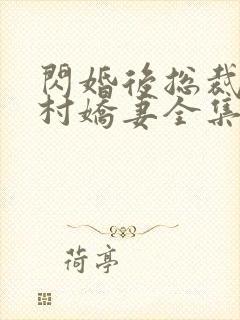 閃婚後総裁
村嬌妻全集
荷亭